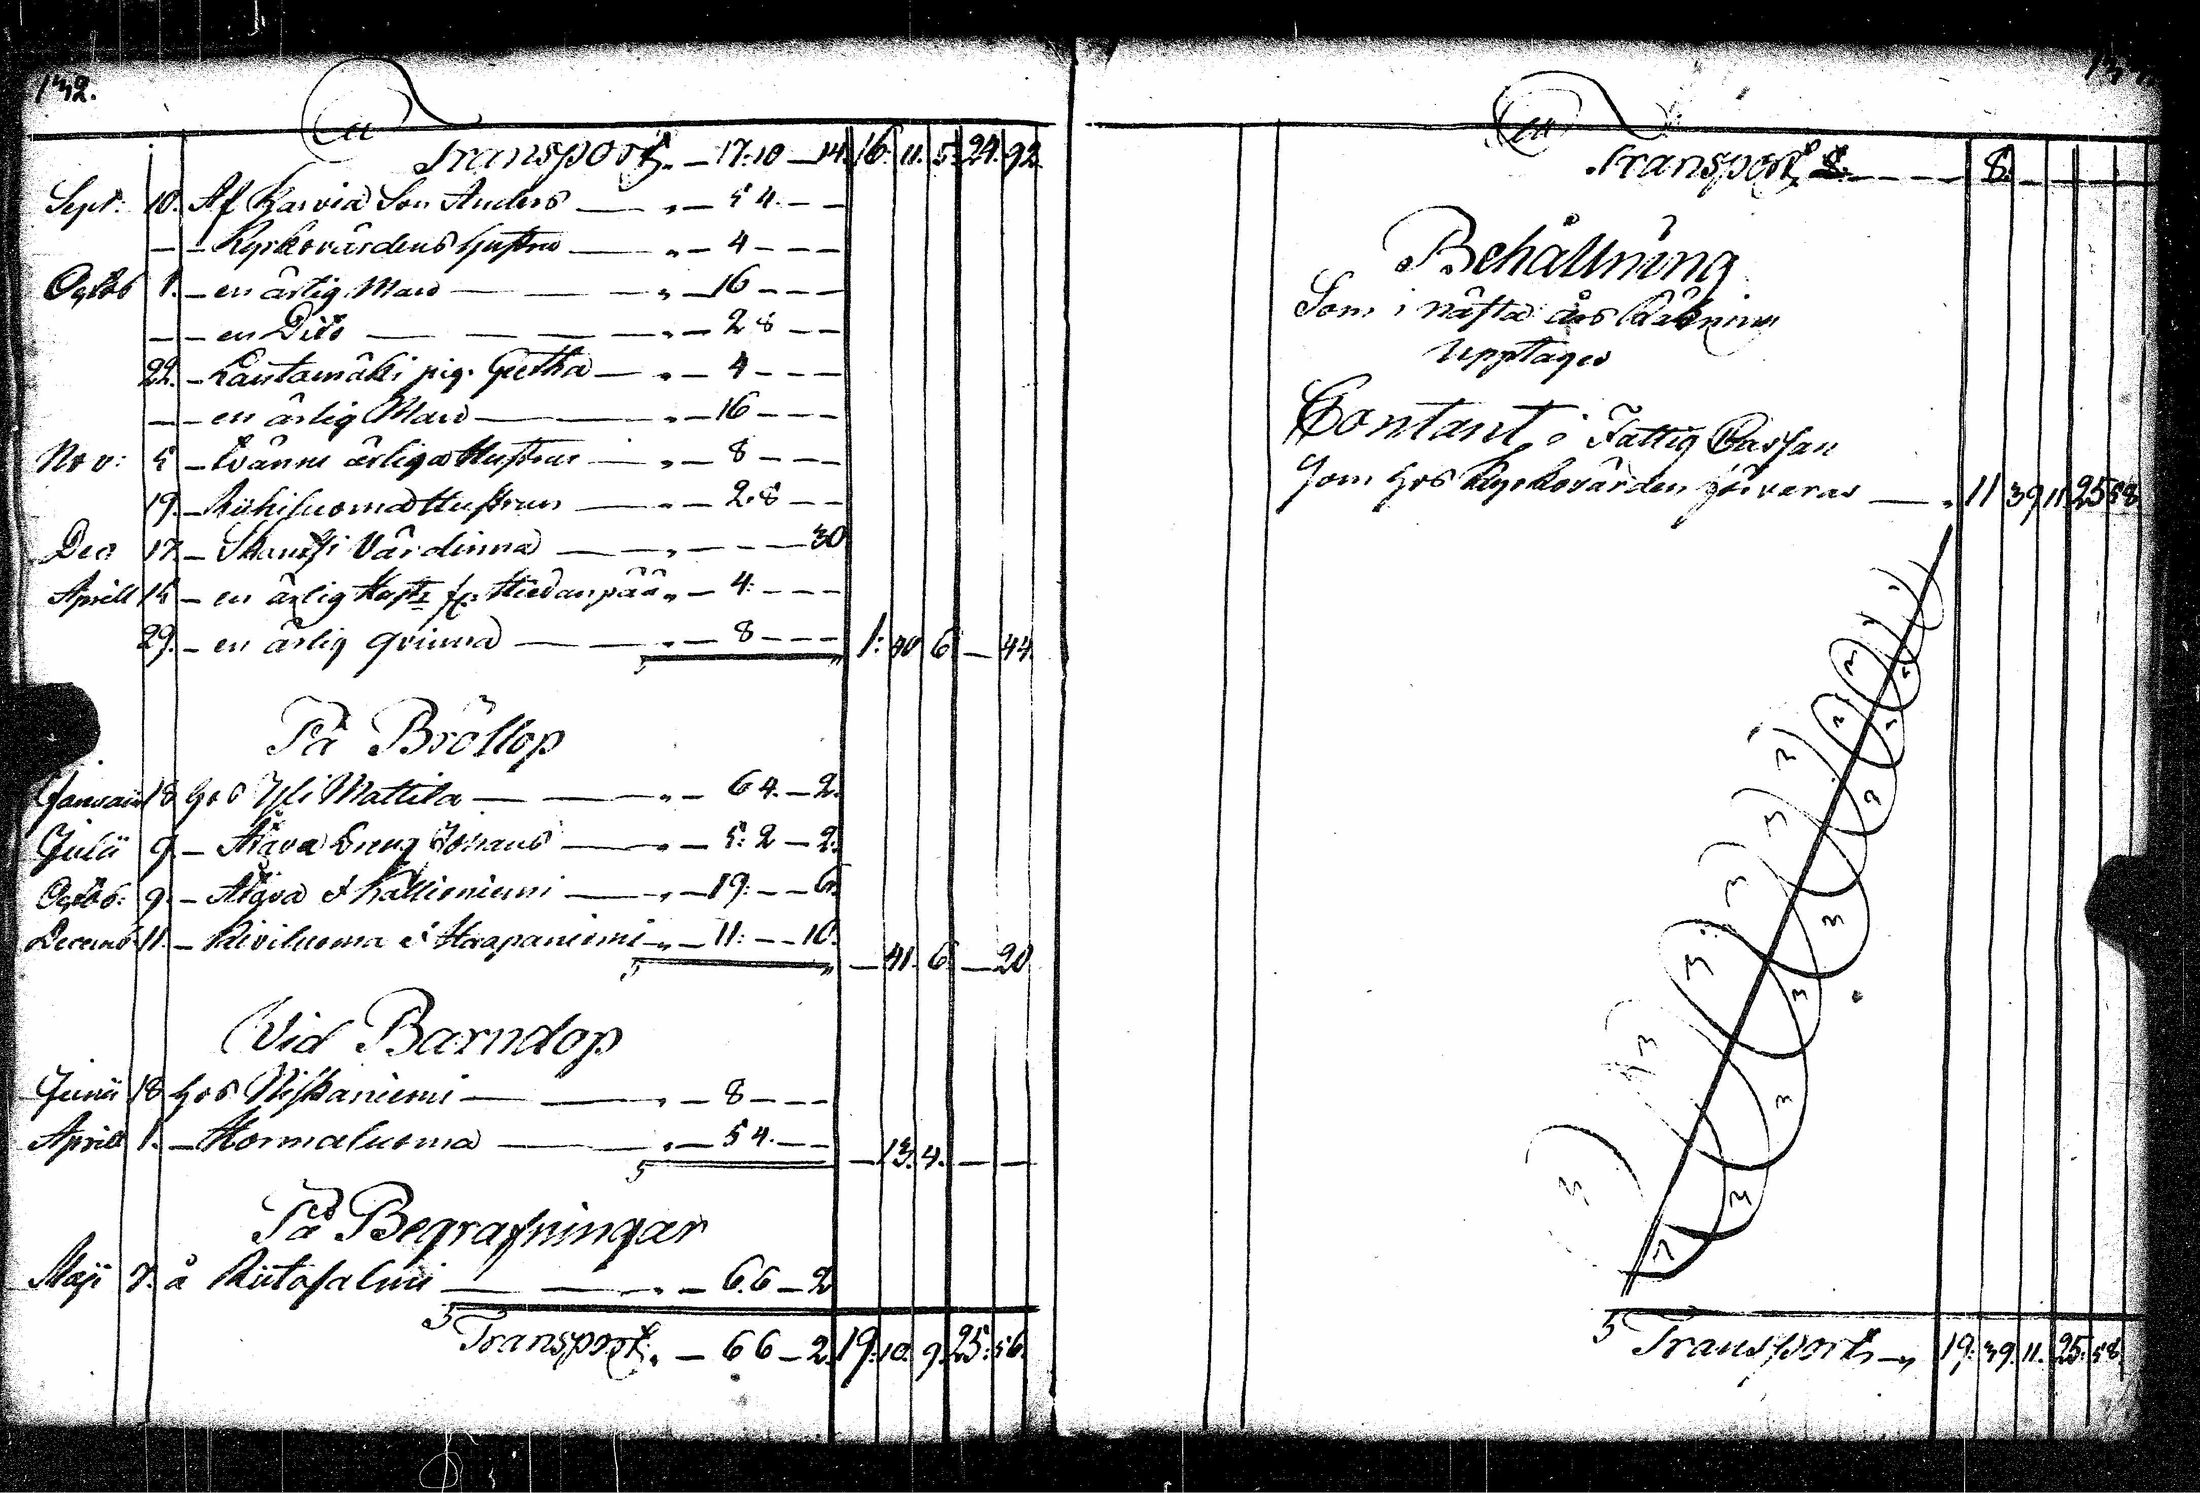 142.
Transport. — 17: 10 — 14. 16. 11. 5. 24. 92.
Sept: 10. Af Karvia Son Anders — „ — 5 4. — —
— — Kyrkovärdens hustru — „ — 4 — — —
Octob 1. — en ärlig Man — — „ — 16 — — —
— — en Dito — — — „ — 28 — —
22. — Lautamäki pig. Gretha — „ — 4 — — —
— — en ärlig Man — — „ — 16 — — —
Nov: 5 — ärliga Hustrur — „ — 8 — — —
19. — Riihiluoma Hustrun — „ — 2.8 — —
Dec 17. — Skantsi Värdinna — „ — — — 30
Aprill 15 — en ärlig Hustr fr. Hiedanpää „ — 4: — — —
29. — en ärlig qvinna — „ — 8 — — — 1: 40 6. — 44.
På Bröllop
Januarii 18 hos Yli Mattila — — „ — 6 4. — 2.
Julii 9. — Alava Johans — „ — 5: 2 — 2.
Octob: 9. — Alava & Kallioniemi — „ — 19: — — 6.
Decemb 11. — Kiviluoma & Haapaniemi — „ — 11: — — 10. — 41. 6. — 20
Vid Barndop
Junii 18 hos Niskaniemi — — „ — 8 — — —
Aprill 1. — Hormaluoma — „ — 5 4. — — — 13. 4. — —
På Begrafningar
Maji 7. å Riitasalmi — — „ — 6.6 — 2
Transport. „ — 6 6 — 2. 19: 10. 9. 25: 56.
Transport — — — — 8. — — — —
Behållning
Som i nästa års Räkning
Upptages
Contant i Fattig Cassan
Som hos Kyrkovärden förvaras — „ 11 39 11 25 58
Transport — „ 19: 39. 11. 25: 58.